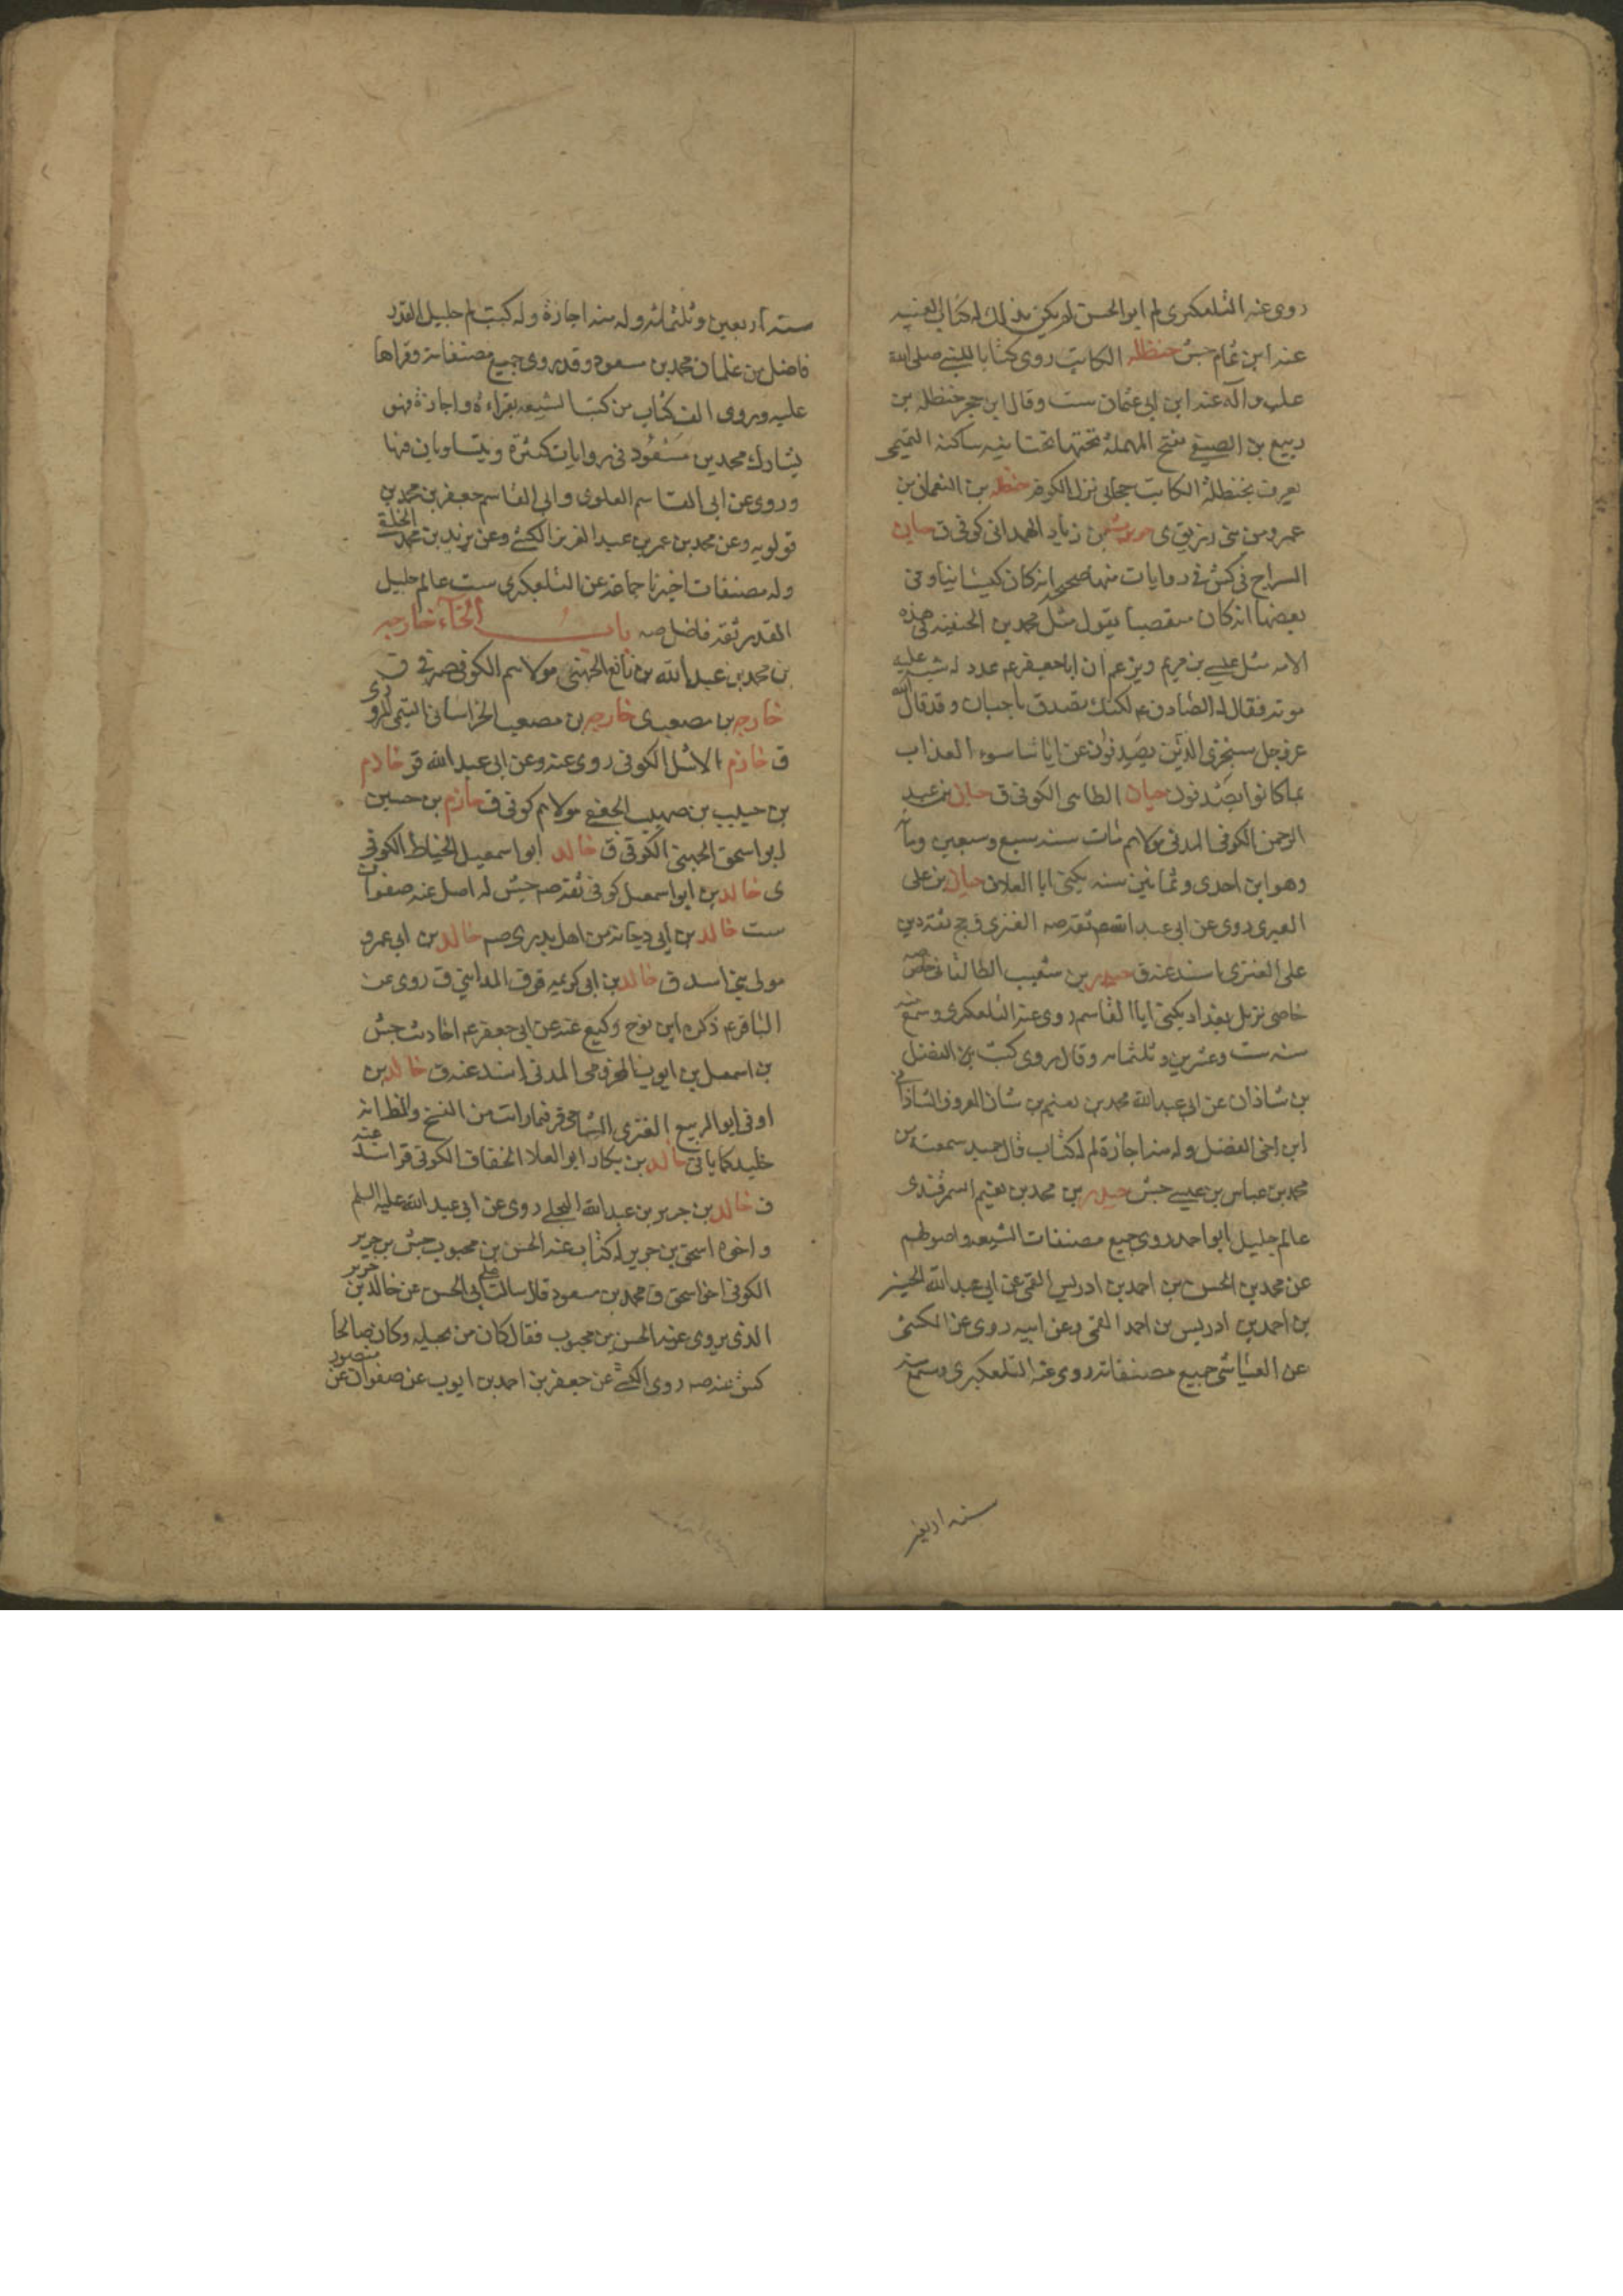 روى عنه التلعكبرى لم ابو الحسن لم يكن بذلك له كتاب الغيبه
عنه ابن تمام جش حنظله الكاتب روى كتابا للنبى صلى الله
عليه وآله عنه ابن ابى عثمان ست وقال ابن حجر حنظله بن
ربيع بن الصيفى بفتح المهملة تحتها تحتانيه ساكنه التميمى
يعرف بحنظلة الكاتب صحابى نزل الكوفه حنظله بن النعمان بن
عمرو من بنى زريق ى بن زياد الهمدانى كوفى ق حيان
السراج فى كش فى روايات منها صحيح انه كان كيسانيا وفى
بعضها انه كان متعصبا يقول مثل محمد بن الحنفيه فى هذه
الامه مثل عيسى بن مريم ويزعم ان ابا جعفر ع عدد له شبه عليه
موته فقال له الصادق ع لكنك تصدق يا حيان وقد قال الله
عز وجل سنجزى الذين يصدفون عن اياتنا سوء العذاب
بما كانوا يصدفون حيان الطائى الكوفى ق حيان بن عبد
الرحمن الكوفى المدنى مولاهم مات سنه سبع وسبعين ومأ
وهو ابن احدى وثمانين سنه يكنى ابا العلاء حيان بن على
العبرى روى عن ابى عبد الله ع ثقه صه العنزى فى جح ثقه دين
على العنزى اسند عنه ق حيدر بن شعيب الطالقانى خاص صه
خاصى نزيل بغداد يكنى ابا القاسم روى عنه التلعكبرى وسمع منه
سنه ست وعشرين وثلثمائه وقال روى كتب بن الفضل
بن شاذان عن ابى عبد الله محمد بن نعيم بن شاذان المعروف بالشاذانى
ابن اخى الفضل وله منه اجازة لم له كتاب قال حميد سمعته من
محمد بن عباس بن عيسى جش حيدر بن محمد بن نعيم السمرقندى
عالم جليل ابو احمد روى جميع مصنفات الشيعه واصولهم
عن محمد بن الحسن بن احمد بن ادريس القمى عن ابى عبد الله الحسين
بن احمد بن ادريس بن احمد القمى وعن ابيه روى عن الكشى
عن العياشى جميع مصنفاته روى عنه التلعكبرى وسمع منه
سنه اربعين
سنه اربعين وثلثمائه وله منه اجازة وله كتب لم جليل القدر
فاضل من غلمان محمد بن مسعود وقد روى جميع مصنفاته وقراها
عليه وروى الف كتاب من كتب الشيعه بقراءة واجازة فهو
يشارك محمد بن مسعود فى روايات كثيرة ويتساويان فيها
وروى عن ابى القاسم العلوى وابى القاسم جعفر بن محمد بن
قولويه وعن محمد بن عمر بن عبد العزيز الكشى وعن يزيد بن محمد
وله مصنفات اخبرنا جماعة عن التلعكبرى ست عالم جليل
القدر ثقه فاضل صه باب الخاء خارجه
بن محمد بن عبد الله بن نافع الجهنى مولاهم الكوفى ق
خارجه بن مصعب ى خارجه بن مصعب الخراسانى التيمى المروزى
ق خازم الاشل الكوفى روى عنه وعن ابى عبد الله قر خازم
بن حبيب بن صهيب الجعفى مولاهم كوفى ق خازم بن حسين
ابو اسحق الجهنى الكوفى ق خالد ابو اسمعيل الخياط الكوفى
ى خالد بن ابو اسمعيل كوفى ثقه صه جش له اصل عنه صفوان
ست خالد بن ابى دجانه من اهل بدر ى صه خالد بن ابى عمرو
مولى بنى اسد ق خالد بن ابى كريمه قر ق المداينى ق روى عن
الباقر ع ذكره ابن نوح وكيع عنه عن ابى جعفر ع احاديث جش
بن اسمعيل بن ايوب المخزومى المدنى اسند عنه ق خالد بن
اوفى ابو الربيع العنزى الشامى قر فيما رات من النسخ
خليد كما ياتى خالد بن بكار ابو العلاء الخفاف الكوفى قر اسند عنه
ق خالد بن جرير بن عبد الله البجلى روى عن ابى عبد الله عليه السلم
واخوه اسحق بن جرير له كتاب عنه الحسن بن محبوب جش بن جرير
الكوفى اخو اسحق ق محمد بن مسعود قال سالت على بن الحسن عن خالد بن جرير
الذى يروى عنه الحسن بن محبوب فقال كان من بجيله وكان صالحا
كش عنه صه روى الكشى عن جعفر بن احمد بن ايوب عن صفوان عن منصور